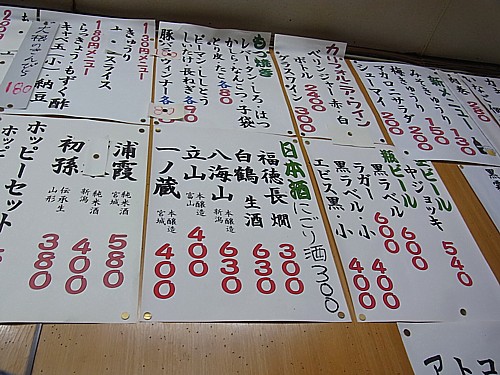 130円メニュー
きゅうり
ト・スライス
180円メニュー
らっきょう もずく酢
キャ玉・小・納豆
180
もつ焼き
レバー・タン・しろ・はつ
かしら・なんこつ・子袋
とり皮・たこ 各80
ピーマン・ししとう
しいたけ・長ねぎ 各90
カリフォルニア・ワイン
ベリンジャー・赤・白
ボトル 2400
グラスワイン 300
150
130
200
200
シューマイ
ビール
中ジョッキ 540
瓶ビール
黒ラベル 600
ラガー 600
黒ラベル・小 400
エビス黒・小 400
日本酒
にごり酒300
福徳長 燗 300
白鶴 生酒 630
八海山 本醸造 新潟 630
立山 本醸造 富山 400
一ノ蔵 本醸造 宮城 400
浦霞 純米酒 宮城 580
純米酒 新潟 400
初孫 伝承生 山形 380
ホッピーセット
アトコ